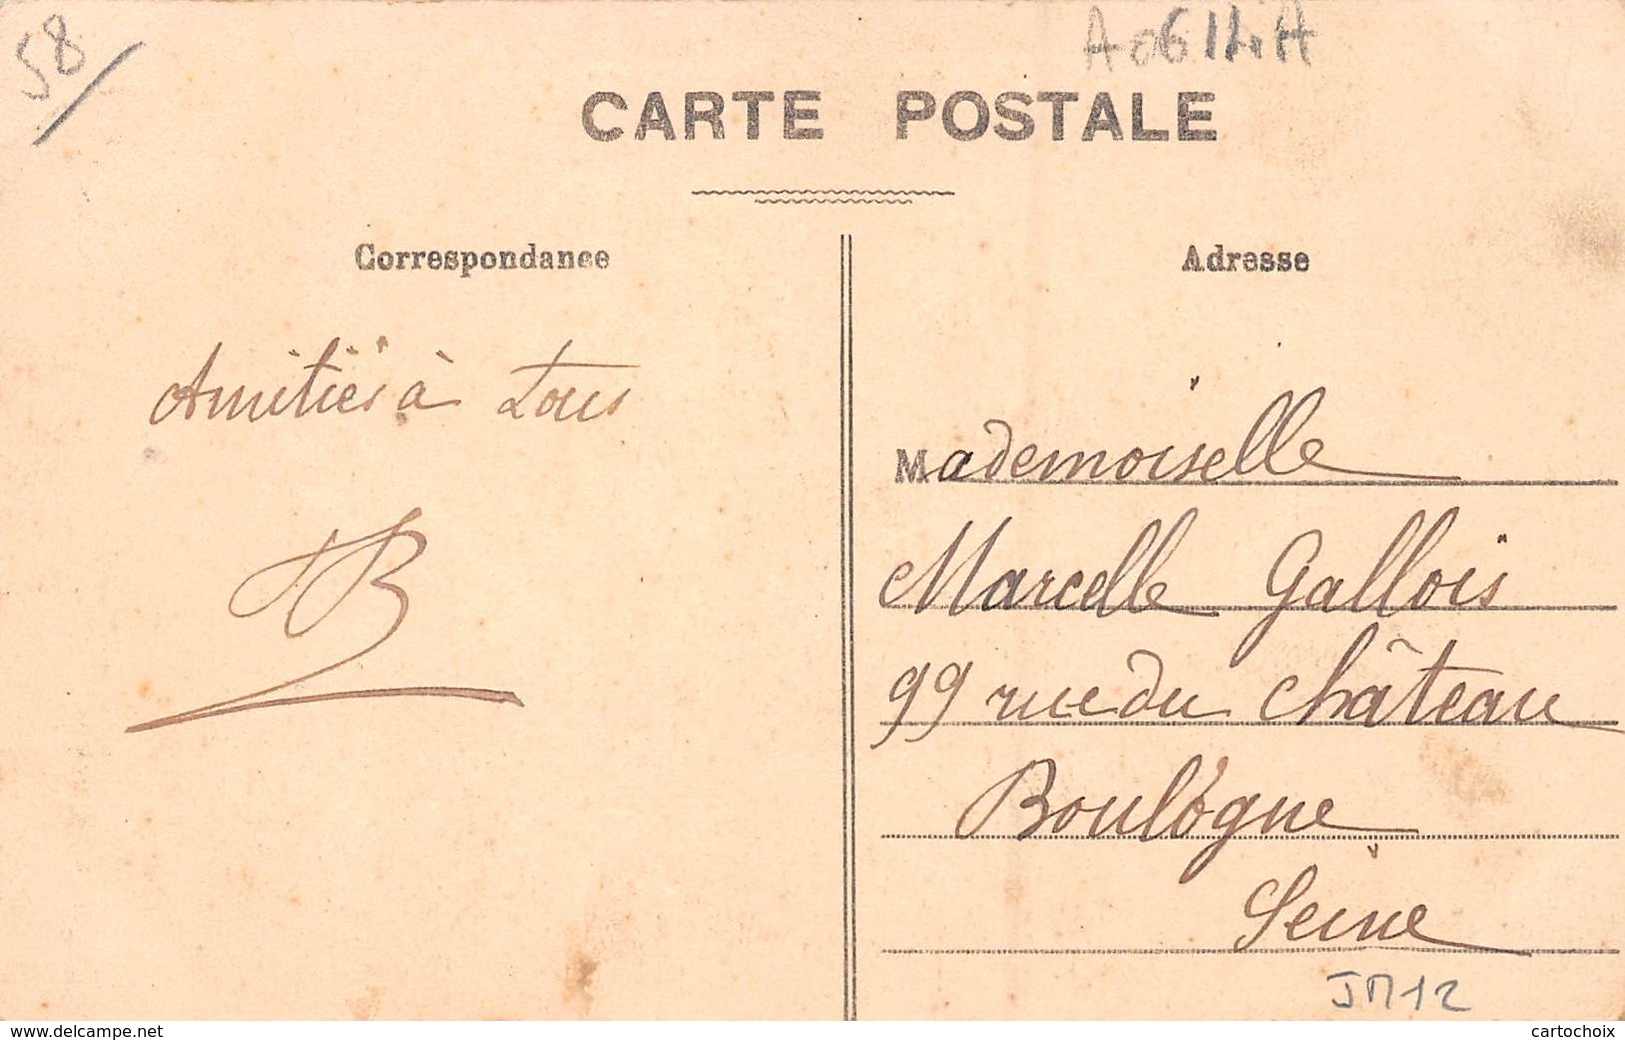 58
CARTE POSTALE
Correspondance
Amitiés à tous
B
Adresse
Mademoiselle
Marcelle Gallois
99 rue du château
Boulogne
Seine
JM12
www.delcampe.net
cartochoix